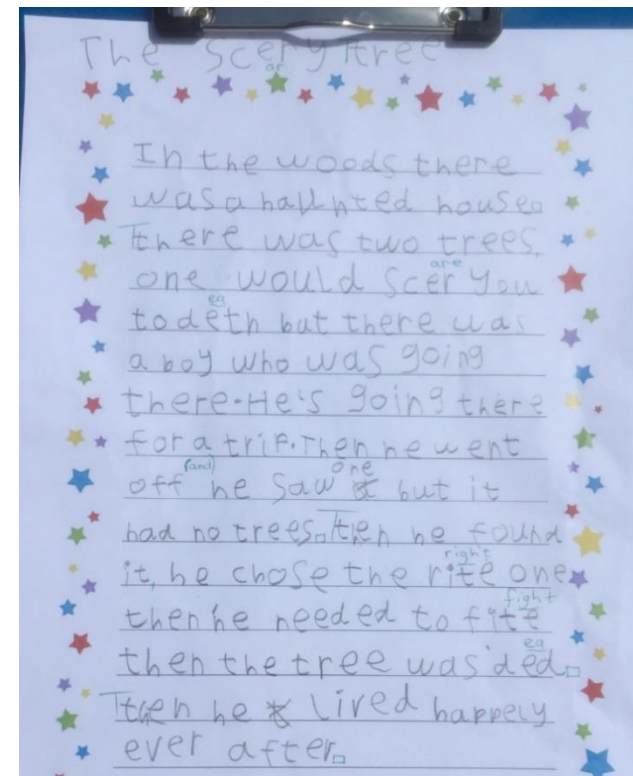 The Scery tree
ar
In the woods there
was a haunted house.
There was two trees,
are
one would scer you
ea
to deth but there was
a boy who was going
there. He's going there
for a trip. Then he went
(and) one
off he saw a but it
had no trees. Then he found
right
it, he chose the rite one
fight
then he needed to fite
ea
then the tree was ded.
Then he lived happely
ever after.